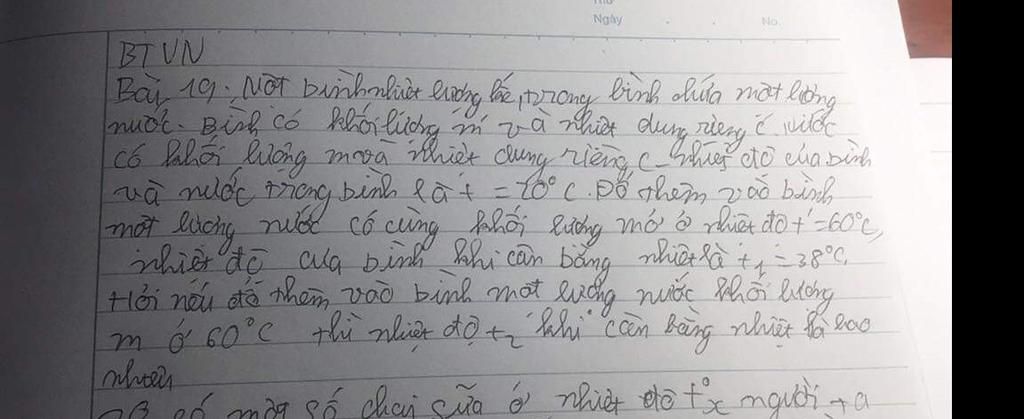 Thứ
Ngày . . No.
BTVN
Bài 19. Một bình nhiệt lượng kế, trong bình chứa một lượng
nước. Bình có khối lượng m' và nhiệt dung riêng c', nước
có khối lượng m và nhiệt dung riêng c. nhiệt độ của bình
và nước trong bình là t = 20°C. Đổ thêm vào bình
một lượng nước có cùng khối lượng m ở nhiệt độ t' = 60°C,
nhiệt độ của bình khi cân bằng nhiệt là t₁ = 38°C.
Hỏi nếu đổ thêm vào bình một lượng nước khối lượng
m ở 60°C thì nhiệt độ t₂ khi cân bằng nhiệt là bao
nhiêu
có một số chai sữa ở nhiệt độ t°x người ta